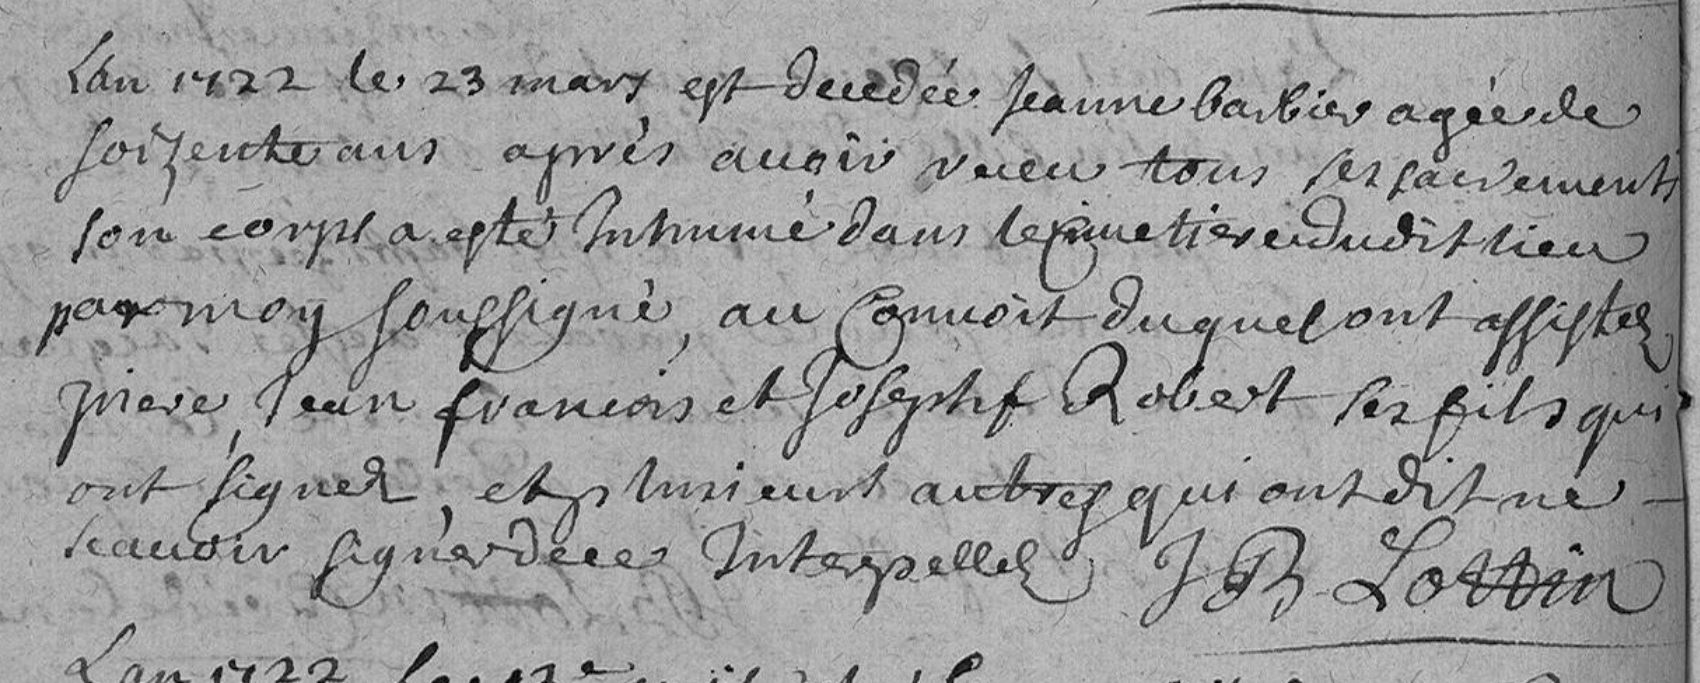 Lan 1722 le 23 mars est decedée Jeanne barbier agée de
soizente ans après auoir receu tous ses sacrements
son corps a esté Inhumé dans le cimetiere dudit lieu
par moy soussigné, au Conuoit duquel ont assistez
piere, Jean francois et Joseph Robert ses fils qui
ont signez, et plusieurs autres qui ont dit ne
scauoir signer de ce Interpellez J B Lottin
Lan 1722